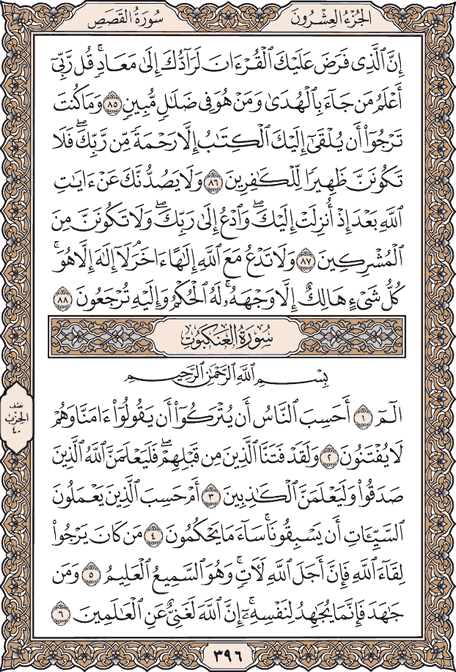 الجزء العشرون سورة القصص
إِنَّ ٱلَّذِى فَرَضَ عَلَيْكَ ٱلْقُرْءَانَ لَرَآدُّكَ إِلَىٰ مَعَادٍۚ قُل رَّبِّىٓ
أَعْلَمُ مَن جَآءَ بِٱلْهُدَىٰ وَمَنْ هُوَ فِى ضَلَٰلٍ مُّبِينٍ ٨٥ وَمَا كُنتَ
تَرْجُوٓا۟ أَن يُلْقَىٰٓ إِلَيْكَ ٱلْكِتَٰبُ إِلَّا رَحْمَةً مِّن رَّبِّكَۖ فَلَا
تَكُونَنَّ ظَهِيرًا لِّلْكَٰفِرِينَ ٨٦ وَلَا يَصُدُّنَّكَ عَنْ ءَايَٰتِ
ٱللَّهِ بَعْدَ إِذْ أُنزِلَتْ إِلَيْكَۖ وَٱدْعُ إِلَىٰ رَبِّكَۖ وَلَا تَكُونَنَّ مِنَ
ٱلْمُشْرِكِينَ ٨٧ وَلَا تَدْعُ مَعَ ٱللَّهِ إِلَٰهًا ءَاخَرَۘ لَآ إِلَٰهَ إِلَّا هُوَۚ
كُلُّ شَىْءٍ هَالِكٌ إِلَّا وَجْهَهُۥۚ لَهُ ٱلْحُكْمُ وَإِلَيْهِ تُرْجَعُونَ ٨٨
سورة العنكبوت
بِسْمِ ٱللَّهِ ٱلرَّحْمَٰنِ ٱلرَّحِيمِ
الٓمٓ ١ أَحَسِبَ ٱلنَّاسُ أَن يُتْرَكُوٓا۟ أَن يَقُولُوٓا۟ ءَامَنَّا وَهُمْ
لَا يُفْتَنُونَ ٢ وَلَقَدْ فَتَنَّا ٱلَّذِينَ مِن قَبْلِهِمْۖ فَلَيَعْلَمَنَّ ٱللَّهُ ٱلَّذِينَ
صَدَقُوا۟ وَلَيَعْلَمَنَّ ٱلْكَٰذِبِينَ ٣ أَمْ حَسِبَ ٱلَّذِينَ يَعْمَلُونَ
ٱلسَّيِّـَٔاتِ أَن يَسْبِقُونَاۚ سَآءَ مَا يَحْكُمُونَ ٤ مَن كَانَ يَرْجُوا۟
لِقَآءَ ٱللَّهِ فَإِنَّ أَجَلَ ٱللَّهِ لَـَٔاتٍۚ وَهُوَ ٱلسَّمِيعُ ٱلْعَلِيمُ ٥ وَمَن
جَٰهَدَ فَإِنَّمَا يُجَٰهِدُ لِنَفْسِهِۦٓۚ إِنَّ ٱللَّهَ لَغَنِىٌّ عَنِ ٱلْعَٰلَمِينَ ٦
نصف
الحزب
٤٠
٣٩٦